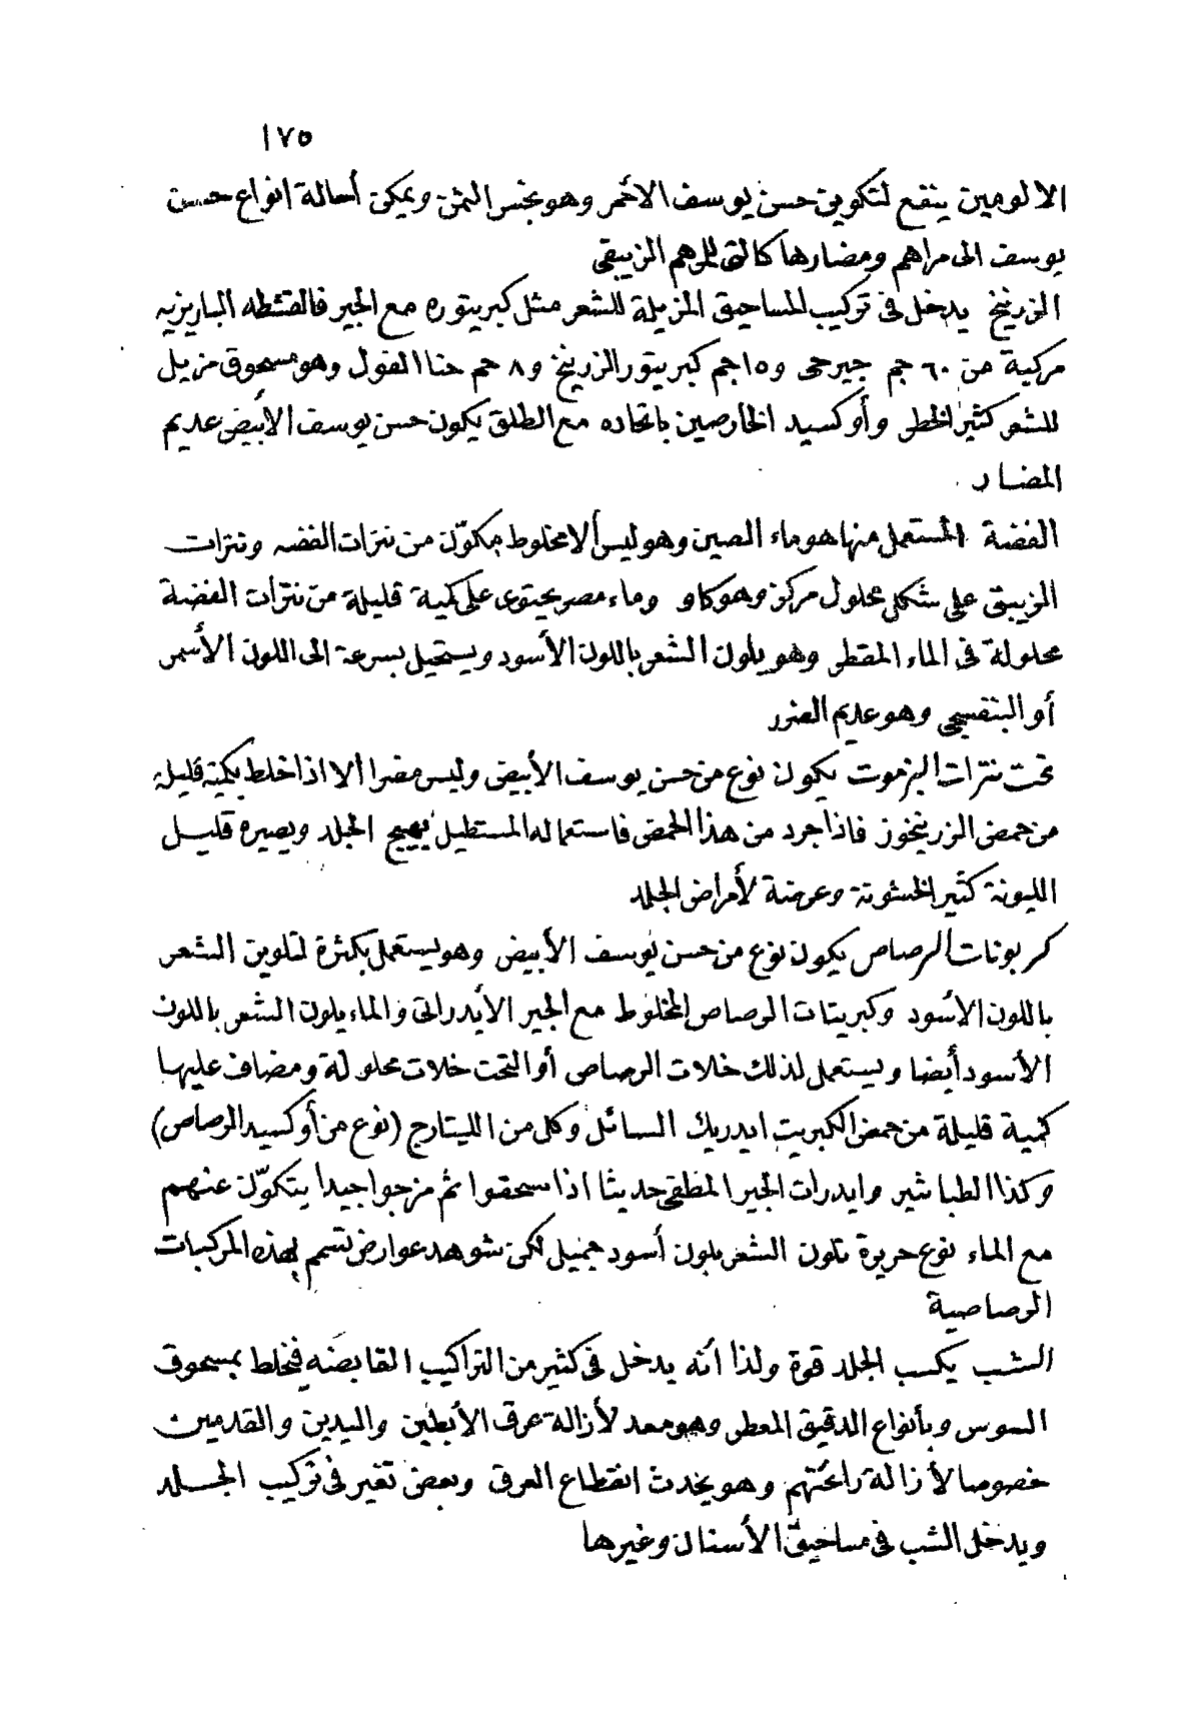 ١٧٥
الالومين ينفع لتكوين حسن يوسف الاحمر وهو بخس الثمن ويمكن أحالة انواع حسن
يوسف الى مراهم ومضارها كالتى للمرهم الزيبقى
الزرنيخ يدخل فى تركيب المساحيق المزيلة للشعر مثل كبريتوره مع الجير فالقشطه الباريزيه
مركبة من ٦٠ جم جيرحى و١٥ جم كبريتور الزرنيخ و٨ جم حنا الفول وهو مسحوق مزيل
للشعر كثير الخطر وأوكسيد الخارصين باتحاده مع الطلق يكون حسن يوسف الأبيض عديم
المضار
الفضة المستعمل منها هو ماء الصين وهو ليس ألا مخلوط مكوّن من نترات الفضه ونترات
الزيبق على شكل محلول مركز وهو كاو وماء مصر يحتوى على كمية قليلة من نترات الفضة
محلولة فى الماء المقطر وهو يلون الشعر باللون الأسود ويستحيل بسرعة الى اللون الأسمر
أو البنفسجى وهو عديم الضرر
تحت نترات البزموت يكون نوع من حسن يوسف الأبيض وليس مضرا ألا اذا خلط بكمية قليله
من حمض الزرنيخوز فاذا جرد من هذا الحمض فاستعماله المستطيل يهيج الجلد ويصيره قليل
الليونة كثير الخشونة وعرضة لأمراض الجلد
كربونات الرصاص يكون نوع من حسن يوسف الأبيض وهو يستعمل بكثرة لتلوين الشعر
باللون الأسود وكبريتات الرصاص المخلوط مع الجير الأيدراتى والماء يلون الشعر باللون
الأسود أيضا ويستعمل لذلك خلات الرصاص أو التحت خلات محلولة ومضاف عليها
كمية قليلة من حمض الكبريت ايدريك السائل وكل من الليتارج (نوع من أوكسيد الرصاص)
وكذا الطباشير وايدرات الجير المطفى حديثا اذا سحقوا ثم مزجوا جيدا يتكوّن عنهم
مع الماء نوع حريرة تلون الشعر بلون أسود جميل لكن شوهد عوارض تسمم بهذه المركبات
الرصاصية
الشب يكسب الجلد قوة ولذا أنه يدخل فى كثير من التراكيب القابضه فيخلط بمسحوق
السوس وبأنواع الدقيق المعطر وهو معد لأزالة عرق الأبطين واليدين والقدمين
خصوصا لأزالة رائحتهم وهو يحدث انقطاع العرق وبعض تغير فى تركيب الجلد
ويدخل الشب فى مساحيق الأسنان وغيرها